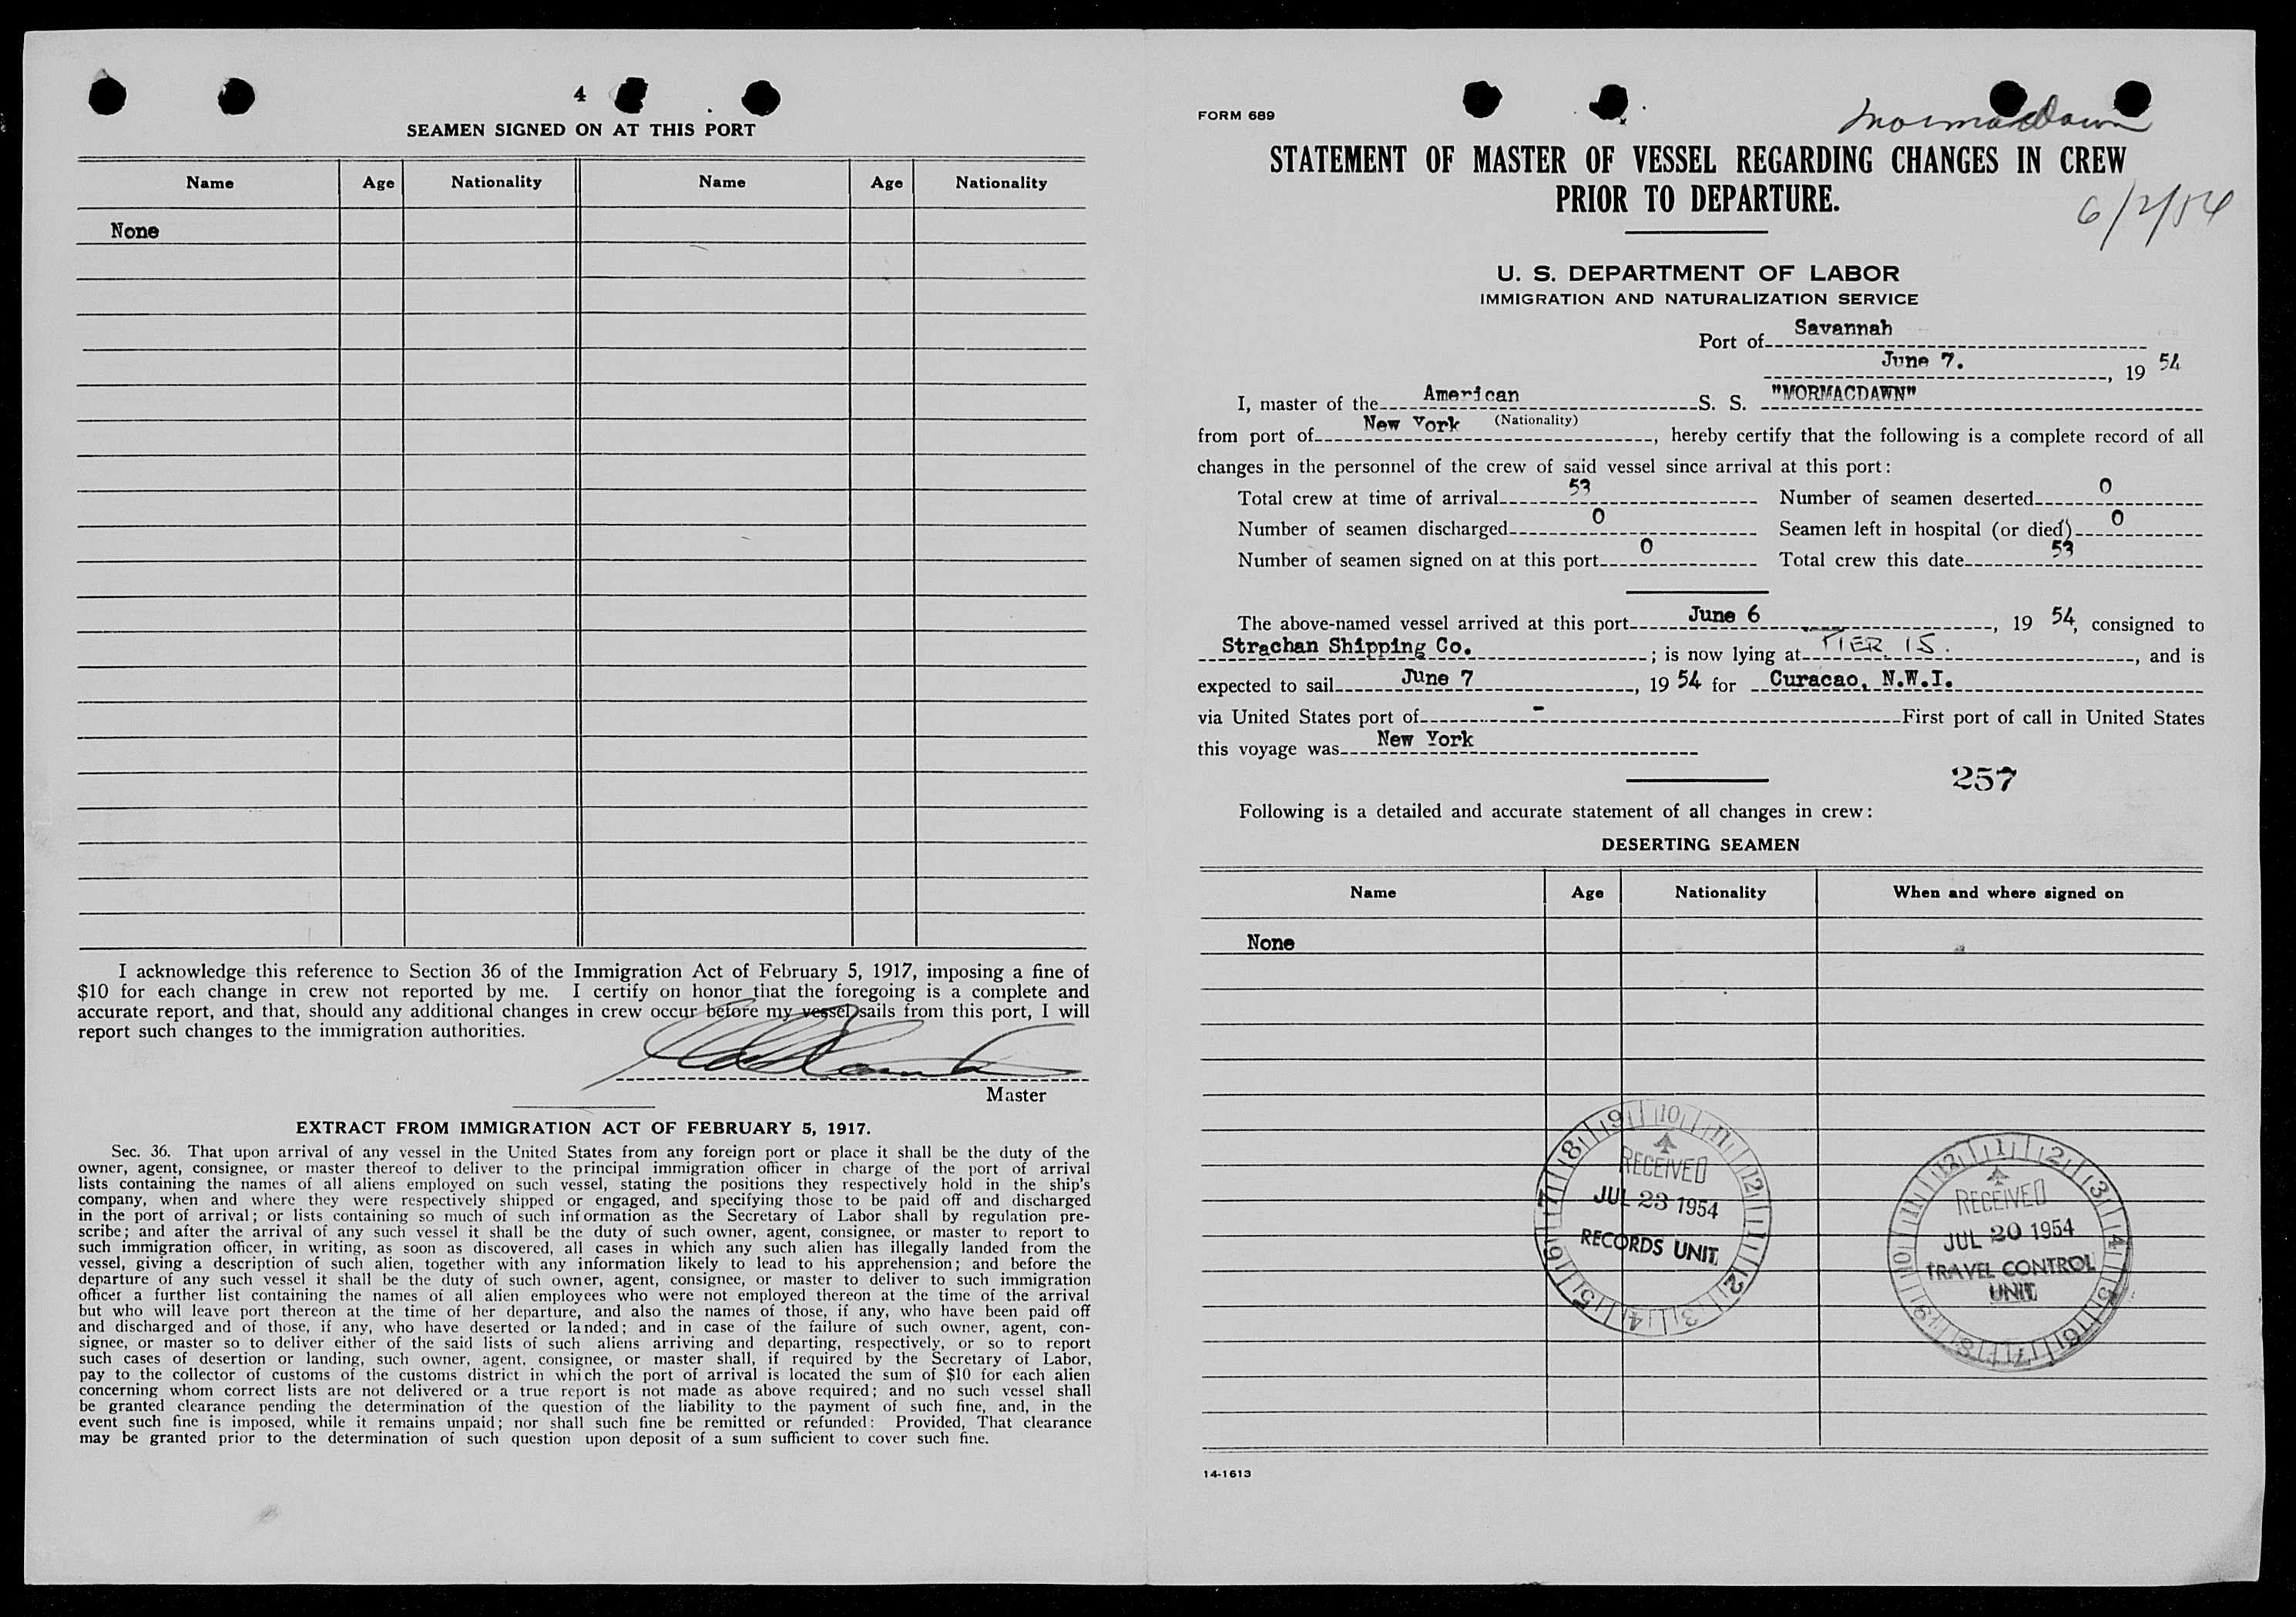 4
SEAMEN SIGNED ON AT THIS PORT
Name Age Nationality Name Age Nationality
None
I acknowledge this reference to Section 36 of the Immigration Act of February 5, 1917, imposing a fine of
$10 for each change in crew not reported by me. I certify on honor that the foregoing is a complete and
accurate report, and that, should any additional changes in crew occur before my vessel sails from this port, I will
report such changes to the immigration authorities.
Master
EXTRACT FROM IMMIGRATION ACT OF FEBRUARY 5, 1917.
Sec. 36. That upon arrival of any vessel in the United States from any foreign port or place it shall be the duty of the
owner, agent, consignee, or master thereof to deliver to the principal immigration officer in charge of the port of arrival
lists containing the names of all aliens employed on such vessel, stating the positions they respectively hold in the ship's
company, when and where they were respectively shipped or engaged, and specifying those to be paid off and discharged
in the port of arrival; or lists containing so much of such information as the Secretary of Labor shall by regulation pre-
scribe; and after the arrival of any such vessel it shall be the duty of such owner, agent, consignee, or master to report to
such immigration officer, in writing, as soon as discovered, all cases in which any such alien has illegally landed from the
vessel, giving a description of such alien, together with any information likely to lead to his apprehension; and before the
departure of any such vessel it shall be the duty of such owner, agent, consignee, or master to deliver to such immigration
officer a further list containing the names of all alien employees who were not employed thereon at the time of the arrival
but who will leave port thereon at the time of her departure, and also the names of those, if any, who have been paid off
and discharged and of those, if any, who have deserted or landed; and in case of the failure of such owner, agent, con-
signee, or master so to deliver either of the said lists of such aliens arriving and departing, respectively, or so to report
such cases of desertion or landing, such owner, agent, consignee, or master shall, if required by the Secretary of Labor,
pay to the collector of customs of the customs district in which the port of arrival is located the sum of $10 for each alien
concerning whom correct lists are not delivered or a true report is not made as above required; and no such vessel shall
be granted clearance pending the determination of the question of the liability to the payment of such fine, and, in the
event such fine is imposed, while it remains unpaid; nor shall such fine be remitted or refunded: Provided, That clearance
may be granted prior to the determination of such question upon deposit of a sum sufficient to cover such fine.
FORM 689
Mormacdawn
STATEMENT OF MASTER OF VESSEL REGARDING CHANGES IN CREW
PRIOR TO DEPARTURE.
6/2/54
U. S. DEPARTMENT OF LABOR
IMMIGRATION AND NATURALIZATION SERVICE
Port of Savannah
June 7. , 19 54
I, master of the American S. S. "MORMACDAWN"
(Nationality)
from port of New York , hereby certify that the following is a complete record of all
changes in the personnel of the crew of said vessel since arrival at this port:
Total crew at time of arrival 53 Number of seamen deserted 0
Number of seamen discharged 0 Seamen left in hospital (or died) 0
Number of seamen signed on at this port 0 Total crew this date 53
The above-named vessel arrived at this port June 6 , 19 54, consigned to
Strachan Shipping Co. ; is now lying at PIER 15. , and is
expected to sail June 7 , 19 54 for Curacao, N.W.I.
via United States port of - First port of call in United States
this voyage was New York
257
Following is a detailed and accurate statement of all changes in crew:
DESERTING SEAMEN
Name Age Nationality When and where signed on
None
9 10 11 12 1 2 3 4 5 6 7 8
RECEIVED
JUL 23 1954
RECORDS UNIT
12 1 2 3 4 5 6 7 8 9 10 11
RECEIVED
JUL 20 1954
TRAVEL CONTROL
UNIT
14-1613